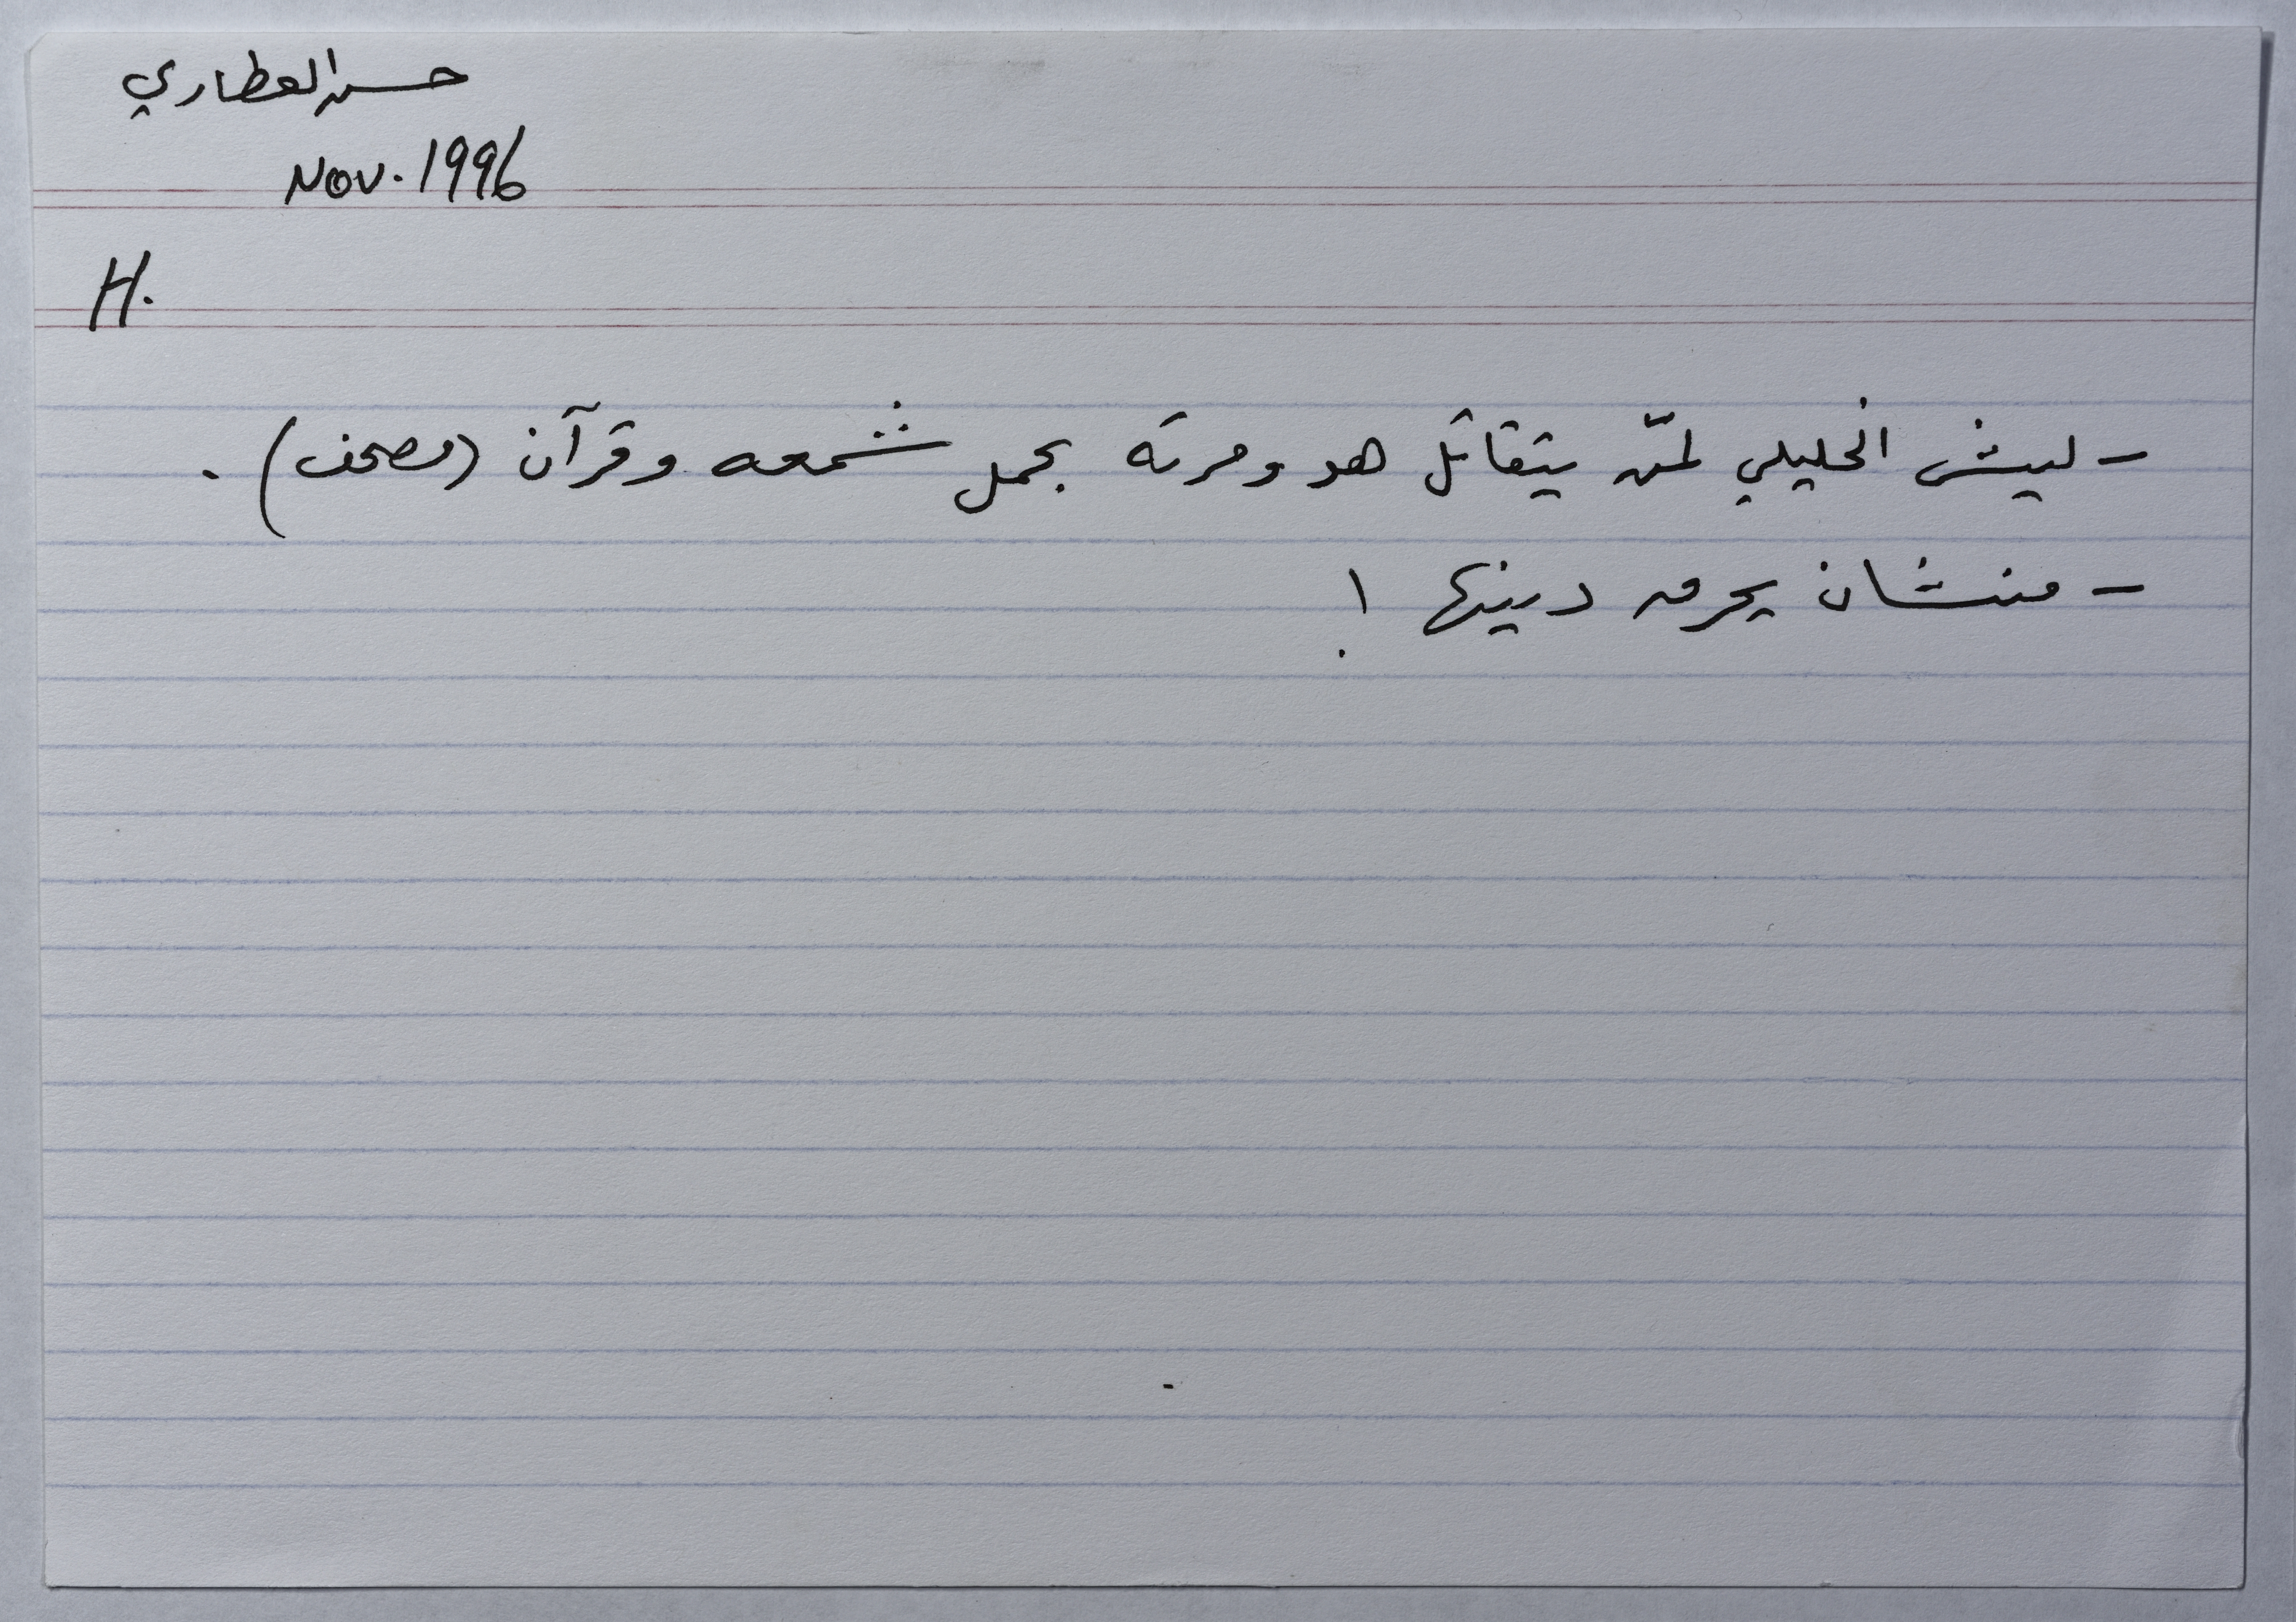 حسن العطاري
Nov. 1996
H.
- ليش الخليلي لمّن يتقاتل هو ومرته بحمل شمعه وقرآن (مصحف).
- منشان يحرق دينها!